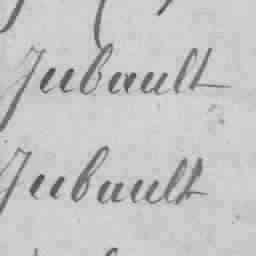 Jubault
Jubault